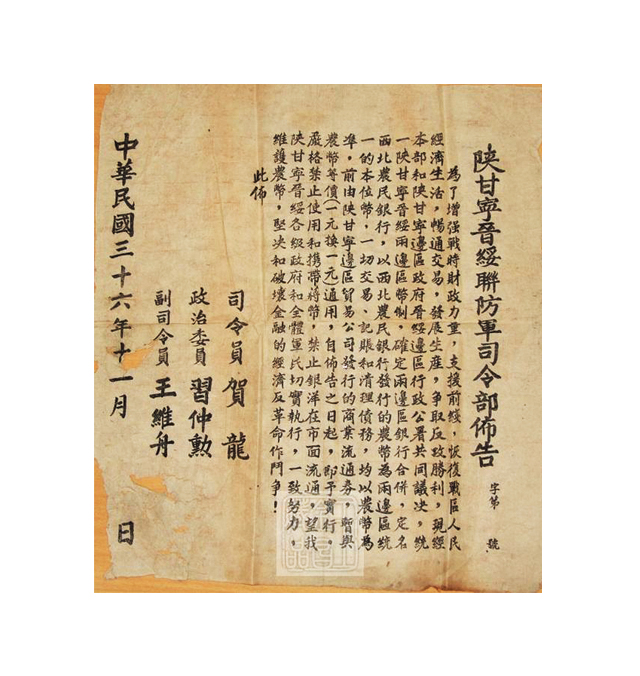 陝甘寧晉綏聯防軍司令部佈告
字第　號
為了增强戰時財政力量，支援前綫，恢復戰區人民
經濟生活，暢通交易，發展生産，争取反攻勝利，現經
本部和陝甘寧邊區政府晉綏邊區行政公署共同議决，統
一陝甘寧晉綏兩邊區幣制，確定兩邊區銀行合併，定名
西北農民銀行，以西北農民銀行發行的農幣為兩邊區統
一的本位幣，一切交易、記賬和清理債務，均以農幣為
準，前由陝甘寧邊區貿易公司發行的商業流通券，暫與
農幣等價（一元換一元）通用，自佈告之日起，即予實行。
嚴格禁止使用和携帶蔣幣，禁止銀洋在市面流通，望我
陝甘寧晉綏各級政府和全體軍民切實執行，一致努力，
維護農幣，堅决和破壞金融的經濟反革命作鬥争！
此佈
司令員　賀　龍
政治委員　習仲勲
副司令員　王維舟
中華民國三十六年十一月　日